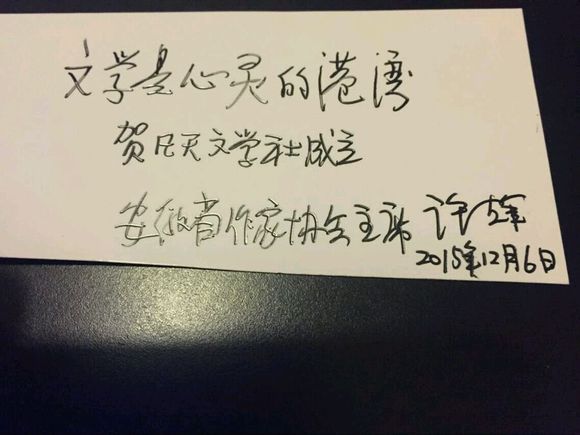 文学是心灵的港湾
贺凡天文学社成立
安徽省作家协会主席 许辉
2015年12月6日